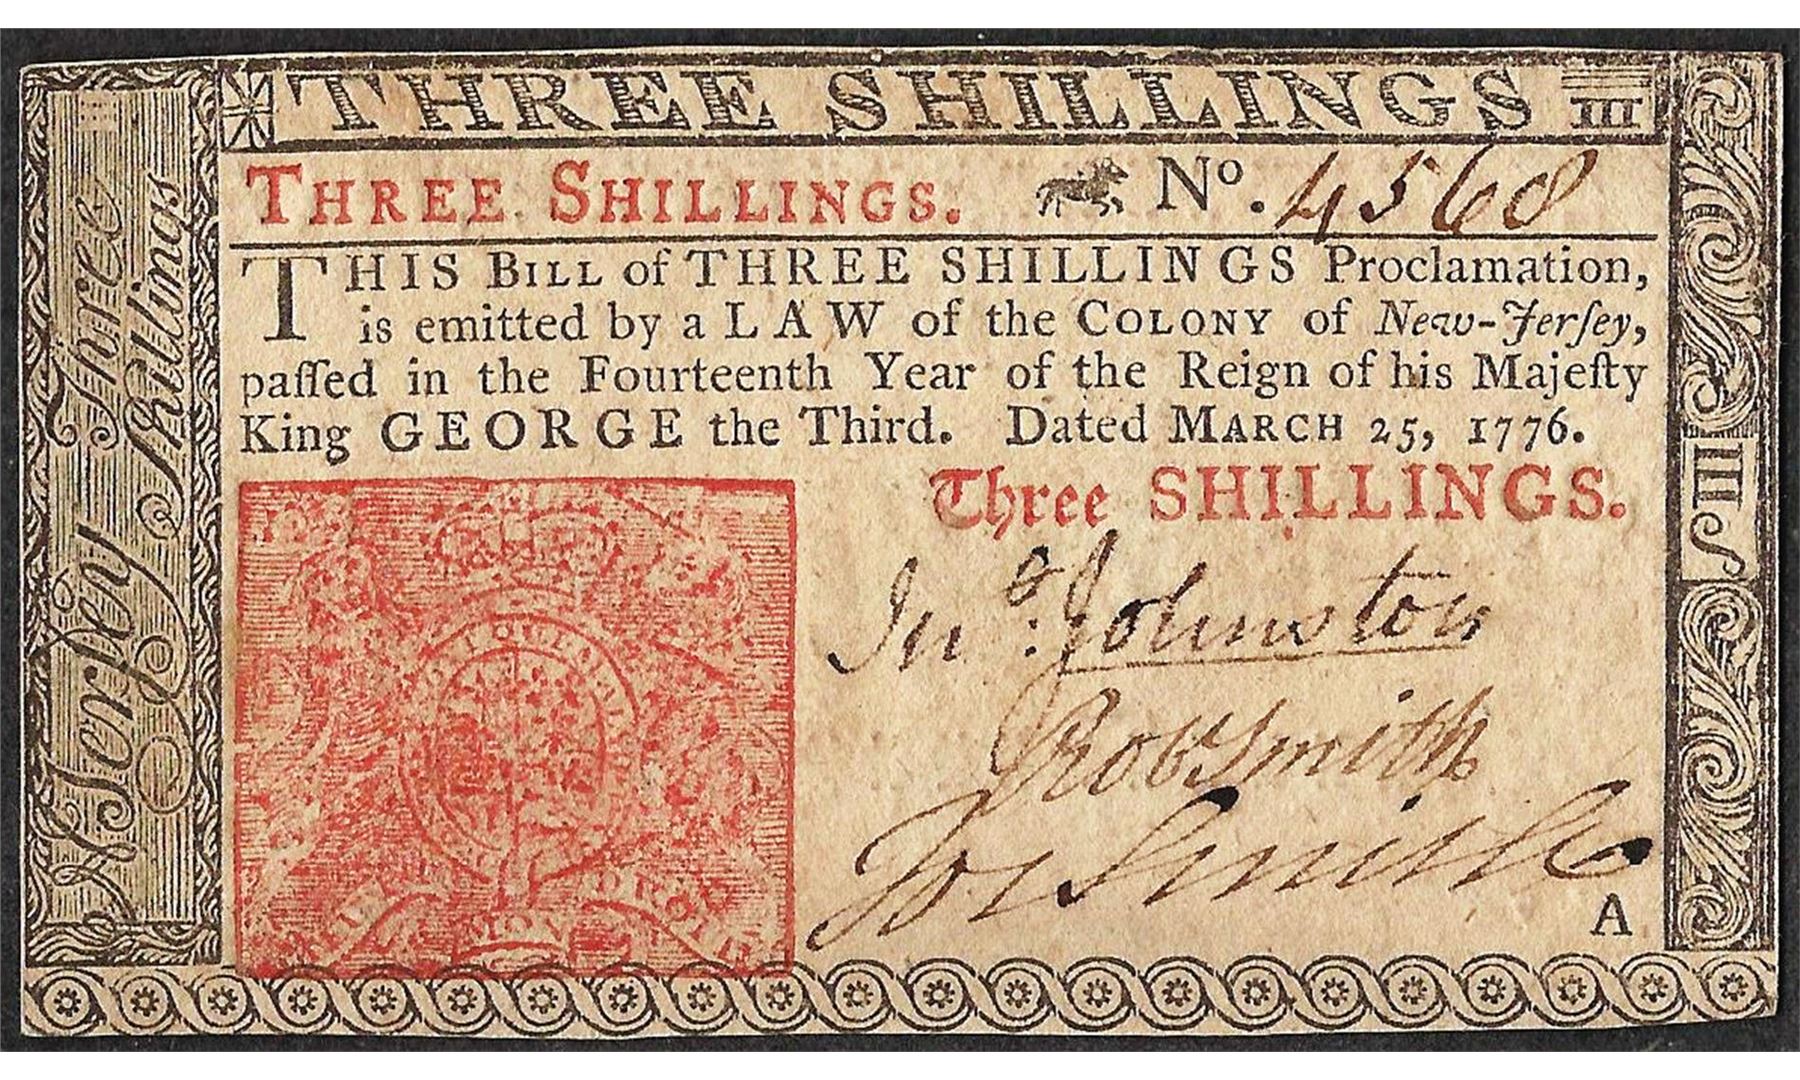 THREE SHILLINGS III
THREE SHILLINGS. No. 4568
THIS BILL of THREE SHILLINGS Proclamation,
is emitted by a LAW of the COLONY of New-Jerſey,
paſſed in the Fourteenth Year of the Reign of his Majeſty
King GEORGE the Third. Dated MARCH 25, 1776.
Three SHILLINGS.
Jno. Johnston
Robt Smith
Jos Smith
A
N Jerſey Three
Shillings
III S